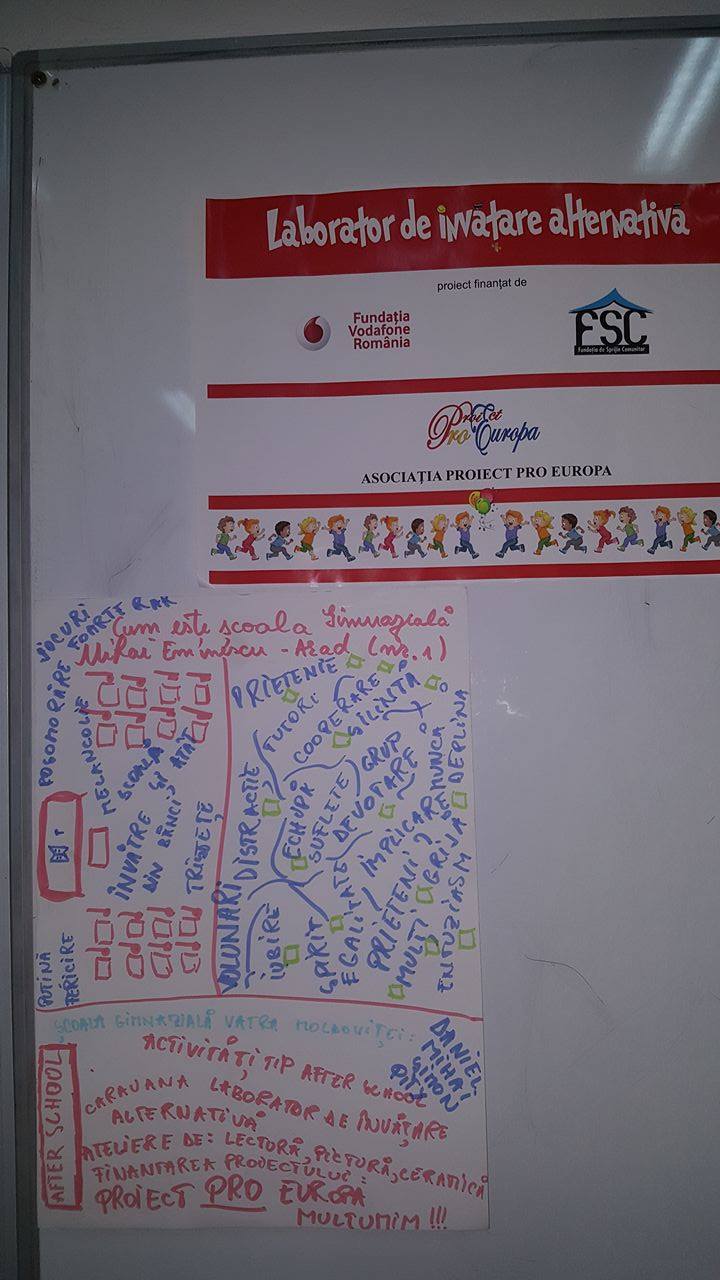 Laborator de învățare alternativă
proiect finanţat de
Fundația
Vodafone
România
FSC
Fundația de Sprijin Comunitar
Proiect
Pro Europa
ASOCIAȚIA PROIECT PRO EUROPA
Cum este școala Gimnazială
Mihai Eminescu - Arad (nr. 1)
JOCURI
FOARTE RAR
MELANCOLIE
ÎNVĂTRE ȘCOALĂ
DIN BĂNCI ȘI ATÂT
TRISTEȚE
PUȚINĂ
FERICIRE
PRIETENIE
TUTORI
COOPERARE
SILINȚĂ
VOLUNARI
DISTRACȚIE
ECHUPĂ
SUFLETE
GRUP
DEVOTARE
MUNCĂ
IUBIRE
SPIRIT
EGALITATE
IMPLICARE
PRIETENI
MULȚI
GRIJĂ DEPLINĂ
ENTUZIASM
ȘCOALA GIMNAZIALĂ VATRA MOLDOVIȚEI:
DANIEL
MIHAI
SIMON
AFTER SCHOOL
ACTIVITĂȚI TIP AFTER SCHOOL
CARAVANA LABORATOR DE ÎNVĂȚARE
ALTERNATIVĂ
ATELIERE DE: LECTURĂ, PICTURĂ, CERAMICĂ
FINANTAREA PROIECTULUI:
PROIECT PRO EUROPA
MULTUMIM !!!